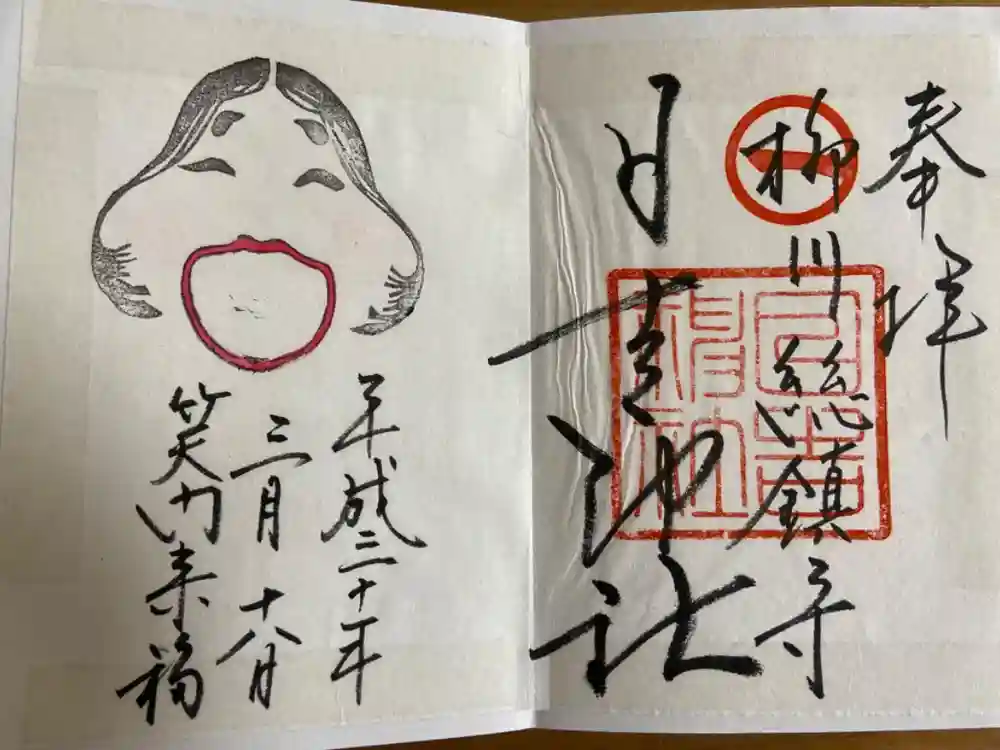 奉拝
柳川総鎮守
日吉神社
日吉神社
平成三十年
三月十八日
笑門来福